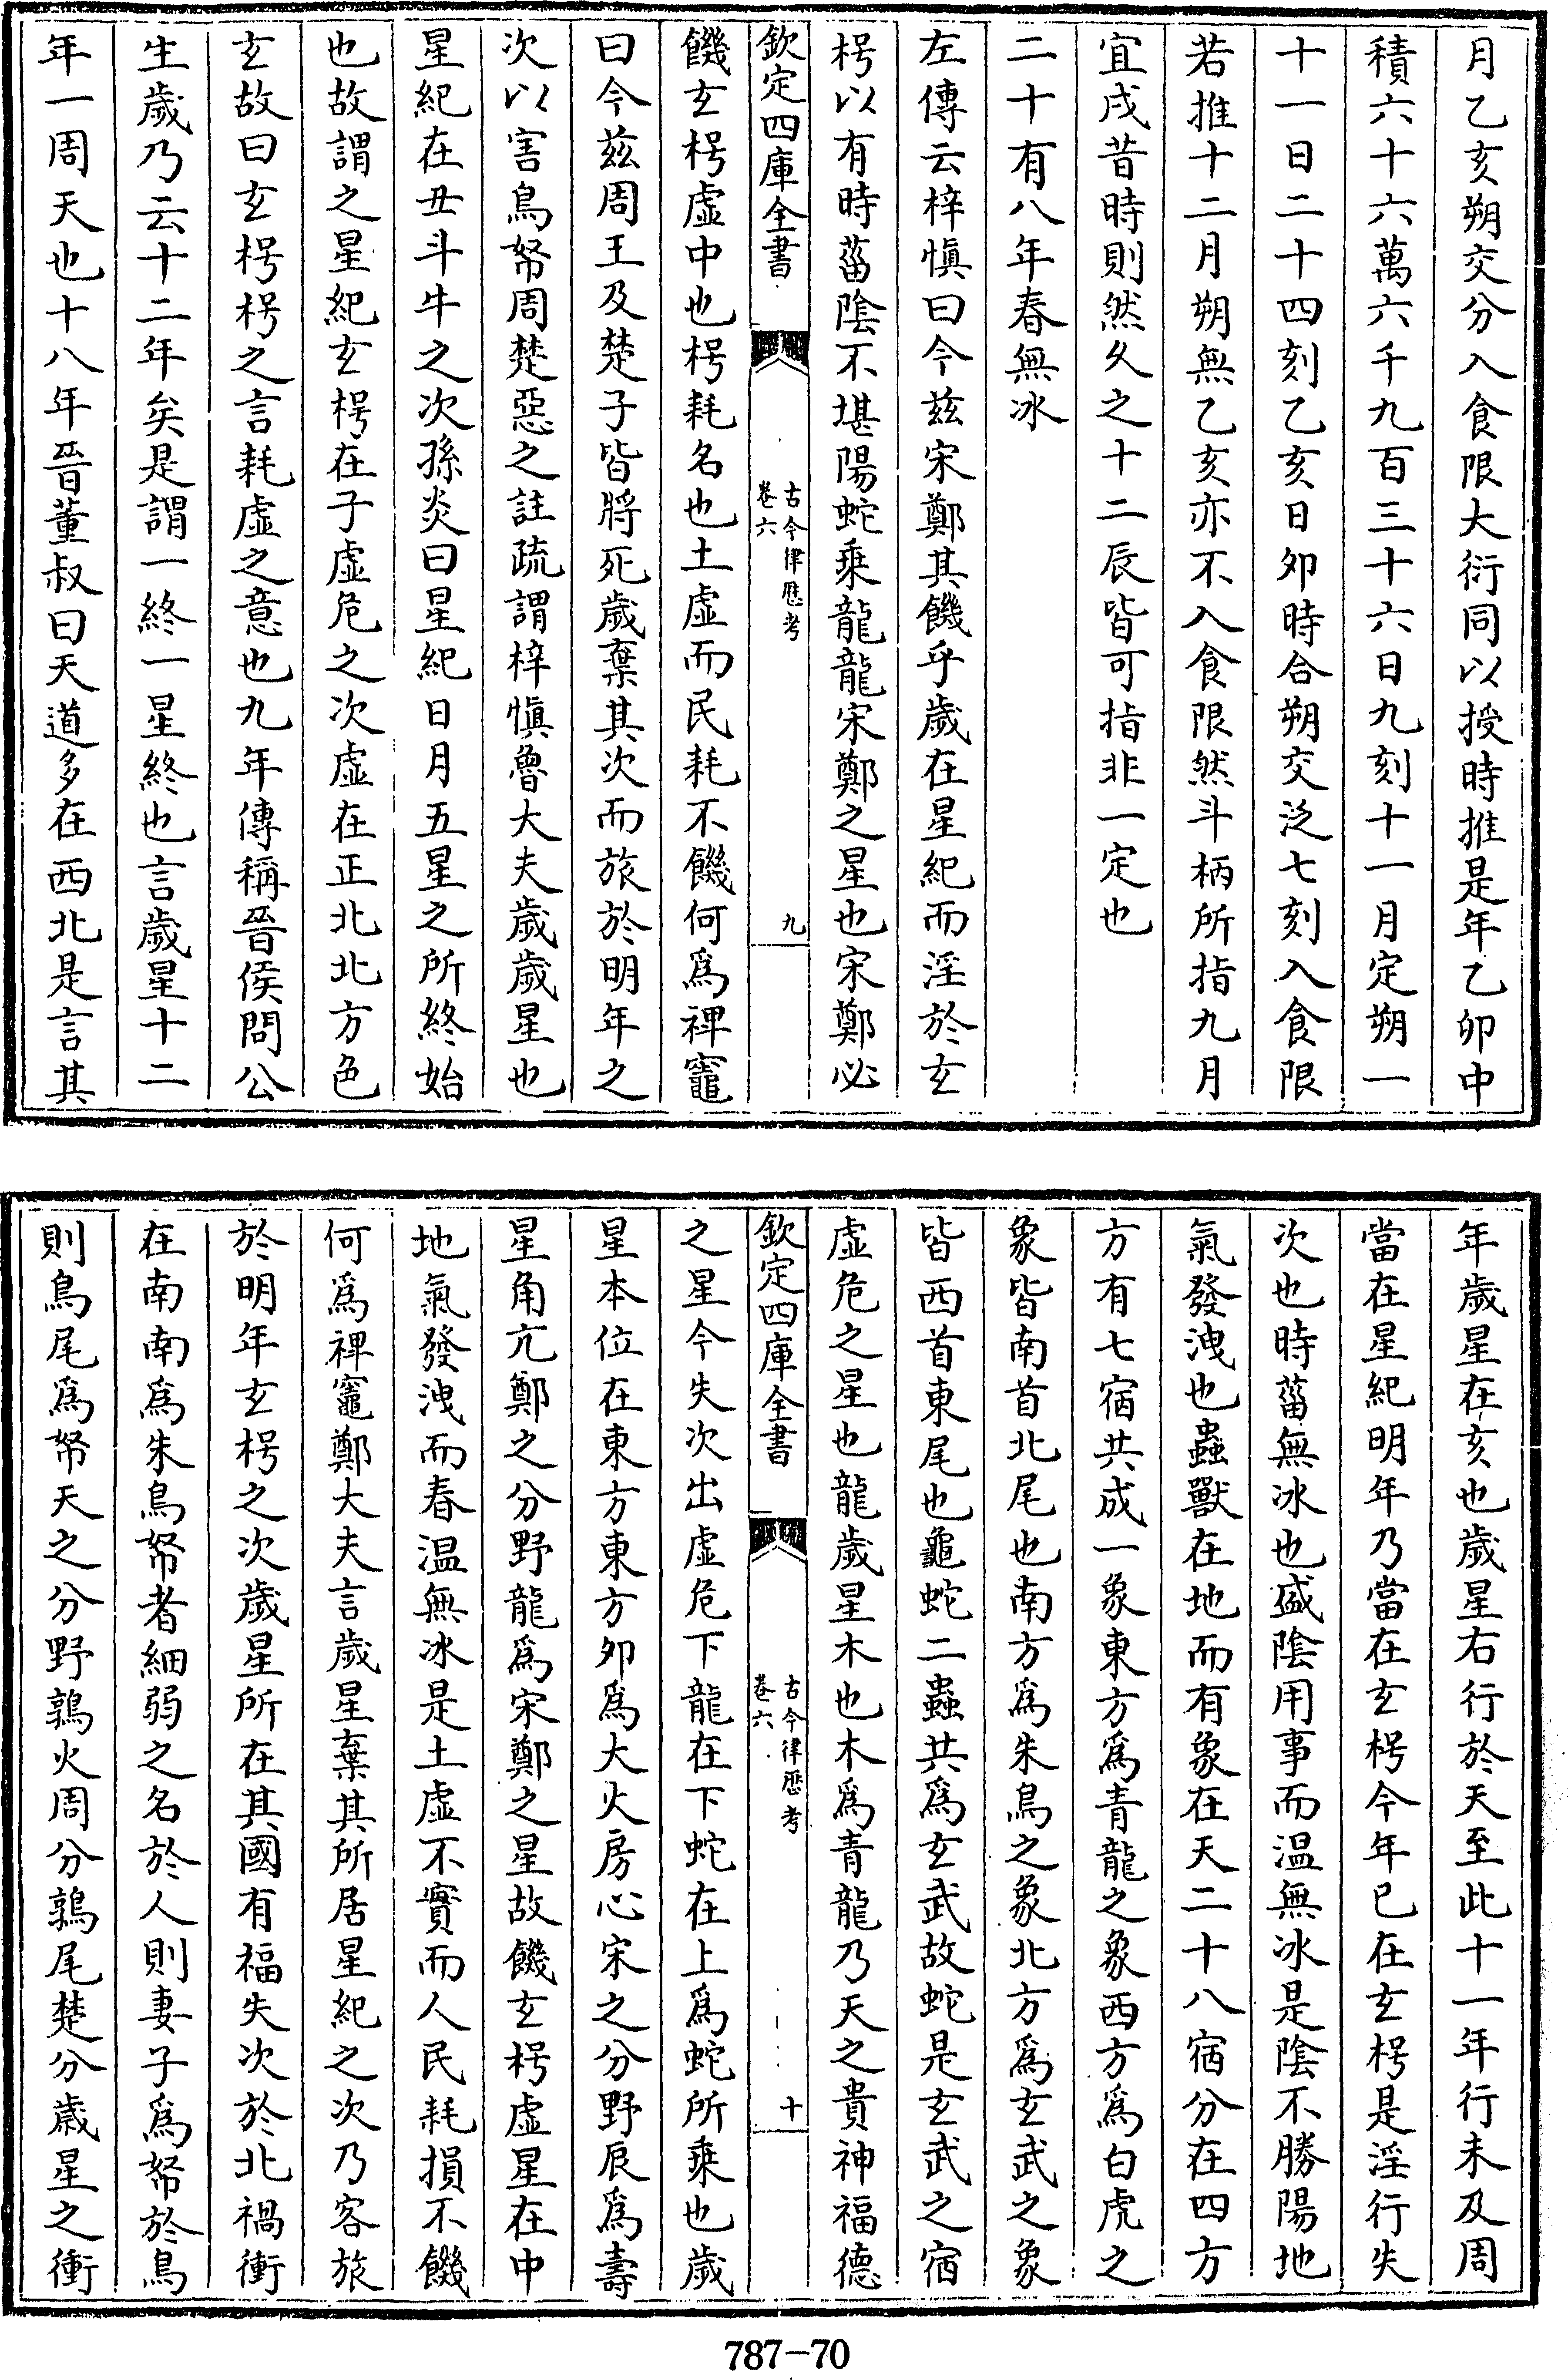 月乙亥朔交分入食限大衍同以授時推是年乙卯中
積六十六萬六千九百三十六日九刻十一月定朔一
十一日二十四刻乙亥日卯時合朔交泛七刻入食限
若推十二月朔無乙亥亦不入食限然斗柄所指九月
宜戌昔時則然久之十二辰皆可指非一定也
二十有八年春無冰
左傳云梓慎曰今茲宋鄭其饑乎歲在星紀而淫於玄
枵以有時菑陰不堪陽蛇乘龍龍宋鄭之星也宋鄭必
欽定四庫全書
古今律歷考
卷六
九
饑玄枵虛中也枵耗名也土虛而民耗不饑何為裨竈
曰今茲周王及楚子皆將死歲棄其次而旅於明年之
次以害鳥帑周楚惡之註疏謂梓慎魯大夫歲歲星也
星紀在丑斗牛之次孫炎曰星紀日月五星之所終始
也故謂之星紀玄枵在子虛危之次虛在正北北方色
玄故曰玄枵枵之言耗虛之意也九年傳稱晉侯問公
生歲乃云十二年矣是謂一終一星終也言歲星十二
年一周天也十八年晉董叔曰天道多在西北是言其
年歲星在亥也歲星右行於天至此十一年行未及周
當在星紀明年乃當在玄枵今年已在玄枵是淫行失
次也時菑無冰也盛陰用事而溫無冰是陰不勝陽地
氣發洩也蟲獸在地而有象在天二十八宿分在四方
方有七宿共成一象東方為青龍之象西方為白虎之
象皆南首北尾也南方為朱鳥之象北方為玄武之象
皆西首東尾也龜蛇二蟲共為玄武故蛇是玄武之宿
虛危之星也龍歲星木也木為青龍乃天之貴神福德
欽定四庫全書
古今律歷考
卷六
十
之星今失次出虛危下龍在下蛇在上為蛇所乘也歲
星本位在東方東方卯為大火房心宋之分野辰為壽
星角亢鄭之分野龍為宋鄭之星故饑玄枵虛星在中
地氣發洩而春溫無冰是土虛不實而人民耗損不饑
何為裨竈鄭大夫言歲星棄其所居星紀之次乃客旅
於明年玄枵之次歲星所在其國有福失次於北禍衝
在南南為朱鳥帑者細弱之名於人則妻子為帑於鳥
則鳥尾為帑天之分野鶉火周分鶉尾楚分歲星之衝
787-70